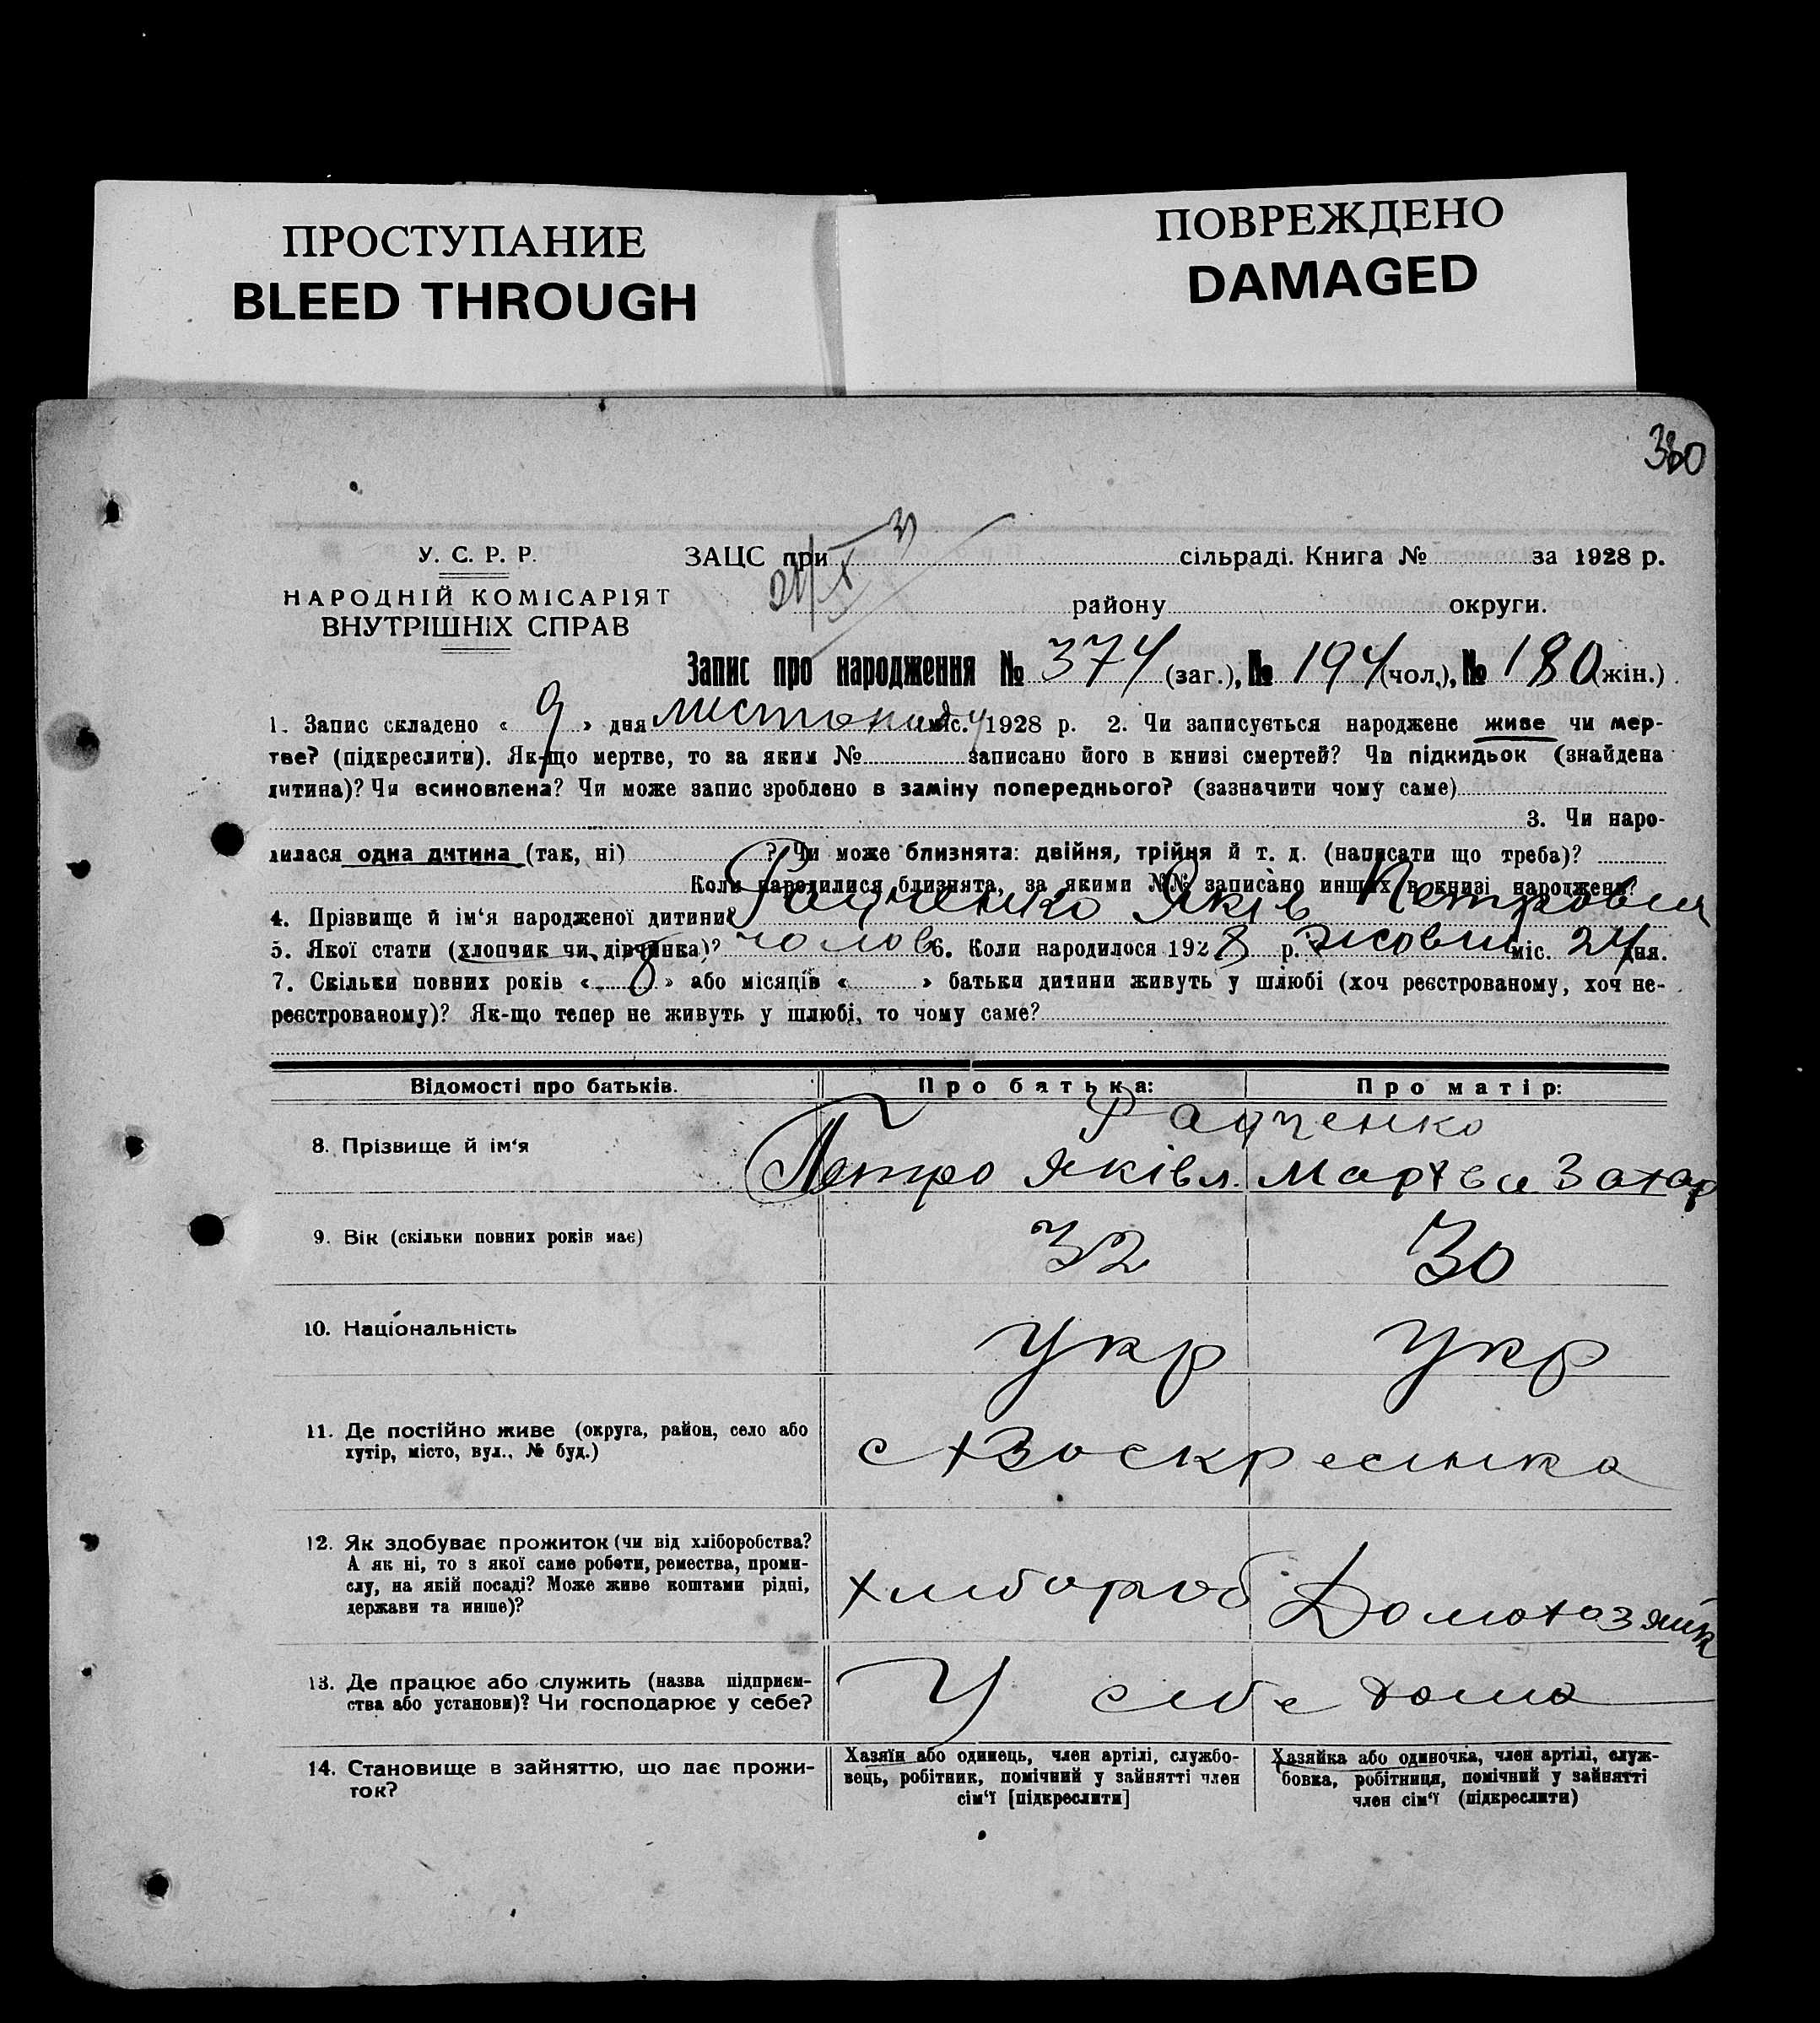 ПРОСТУПАНИЕ
BLEED THROUGH
ПОВРЕЖДЕНО
DAMAGED
330
У. С. Р. Р.
НАРОДНІЙ КОМІСАРІЯТ
ВНУТРІШНІХ СПРАВ
ЗАЦС при сільраді. Книга № за 1928 р.
району округи.
Запис про народження № 374 (заг.), № 194 (чол.), № 180 (жін.)
1. Запис складено « 9 » дня листопаду міс. 1928 р. 2. Чи записується народжене живе чи мер-
тве? (підкреслити). Як-що мертве, то за яким № записано його в книзі смертей? Чи підкидьок (знайдена
дитина)? Чи всиновлена? Чи може запис зроблено в заміну попереднього? (зазначити чому саме)
3. Чи наро-
дилася одна дитина (так, ні) ? Чи може близнята: двійня, трійня й т. д. (написати що треба)?
Коли народилися близнята, за якими №№ записано инших в книзі народжень?
4. Прізвище й ім‘я народженої дитини? Радченко Яків Петрович
5. Якої стати (хлопчик чи дівчинка)? чолов 6. Коли народилося 1928 р. жовтн міс. 24 дня.
7. Скільки повних років « 8 » або місяців « » батьки дитини живуть у шлюбі (хоч реєстрованому, хоч не-
реєстрованому)? Як-що тепер не живуть у шлюбі, то чому саме?
Відомості про батьків. Про батька: Про матір:
Радченко
8. Прізвище й ім‘я Петро Яківл. Марфа Захар
9. Вік (скільки повних років має) 32 30
10. Національність Укр Укр
11. Де постійно живе (округа, район, село або
хутір, місто, вул., № буд.) с Воскресенка
12. Як здобуває прожиток (чи від хліборобства?
А як ні, то з якої саме роботи, ремества, проми-
слу, на якій посаді? Може живе коштами рідні,
держави та инше)?
хлибороб Домохозяйк
13. Де працює або служить (назва підприєм-
ства або установи)? Чи господарює у себе?
У себе дома
14. Становище в зайняттю, що дає прожи-
ток?
Хазяїн або одинець, член артілі, службо-
вець, робітник, помічний у зайнятті член
сім‘ї [підкреслити]
Хазяйка або одиночка, член артілі, служ-
бовка, робітниця, помічний у зайнятті
член сім‘ї (підкреслити)